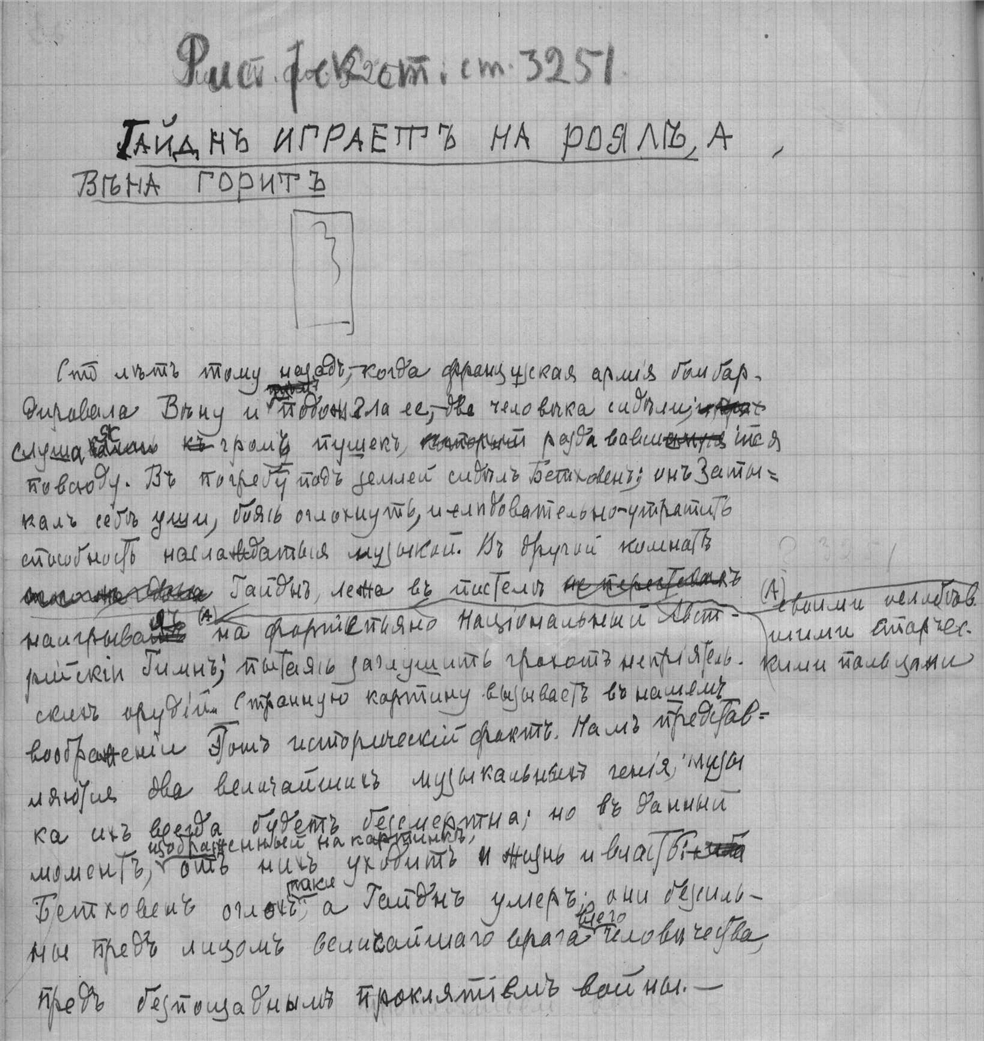 ст. 3251.
ГАЙДНЪ ИГРАЕТЪ НА РОЯЛѢ, А
ВѢНА ГОРИТЪ
Сто лѣтъ тому назадъ, когда французская армія бомбар-
дировала Вѣну и подожгла ее, два человѣка сидѣли,
слушая громъ пушекъ, раздававшійся
повсюду. Въ погребѣ подъ землей сидѣлъ Бетховенъ; онъ заты=
калъ себѣ уши, боясь оглохнуть, и слѣдовательно утратить
способность наслаждаться музыкой. Въ другой комнатѣ
Гайднъ, лежа въ постелѣ не переставая
наигрывалъ (А) на фортепьяно Національный Авст-
рійскій Гимнъ; пытаясь заглушить грохотъ непріятель-
скихъ орудій. Странную картину вызываетъ въ нашемъ
воображеніи этотъ историческій фактъ. Намъ представ=
ляются два величайшихъ музыкальныхъ генія, музы
ка ихъ всегда будетъ безсмертна; но въ данный
изображенный на картинкѣ,
моментъ, отъ нихъ уходитъ и жизнь и власть.
Бетховенъ оглохъ, а Гайднъ умеръ; они безсиль-
ны предъ лицомъ величайшаго врага всего человѣчества,
предъ безпощаднымъ проклятіемъ войны.—
(А) своими ослабѣв
шими старчес-
кими пальцами